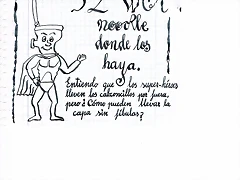 donde los
haya.
Entiendo que los super-héroes
lleven los calzoncillos por fuera,
pero ¿Cómo pueden llevar la
capa sin fíbulas?